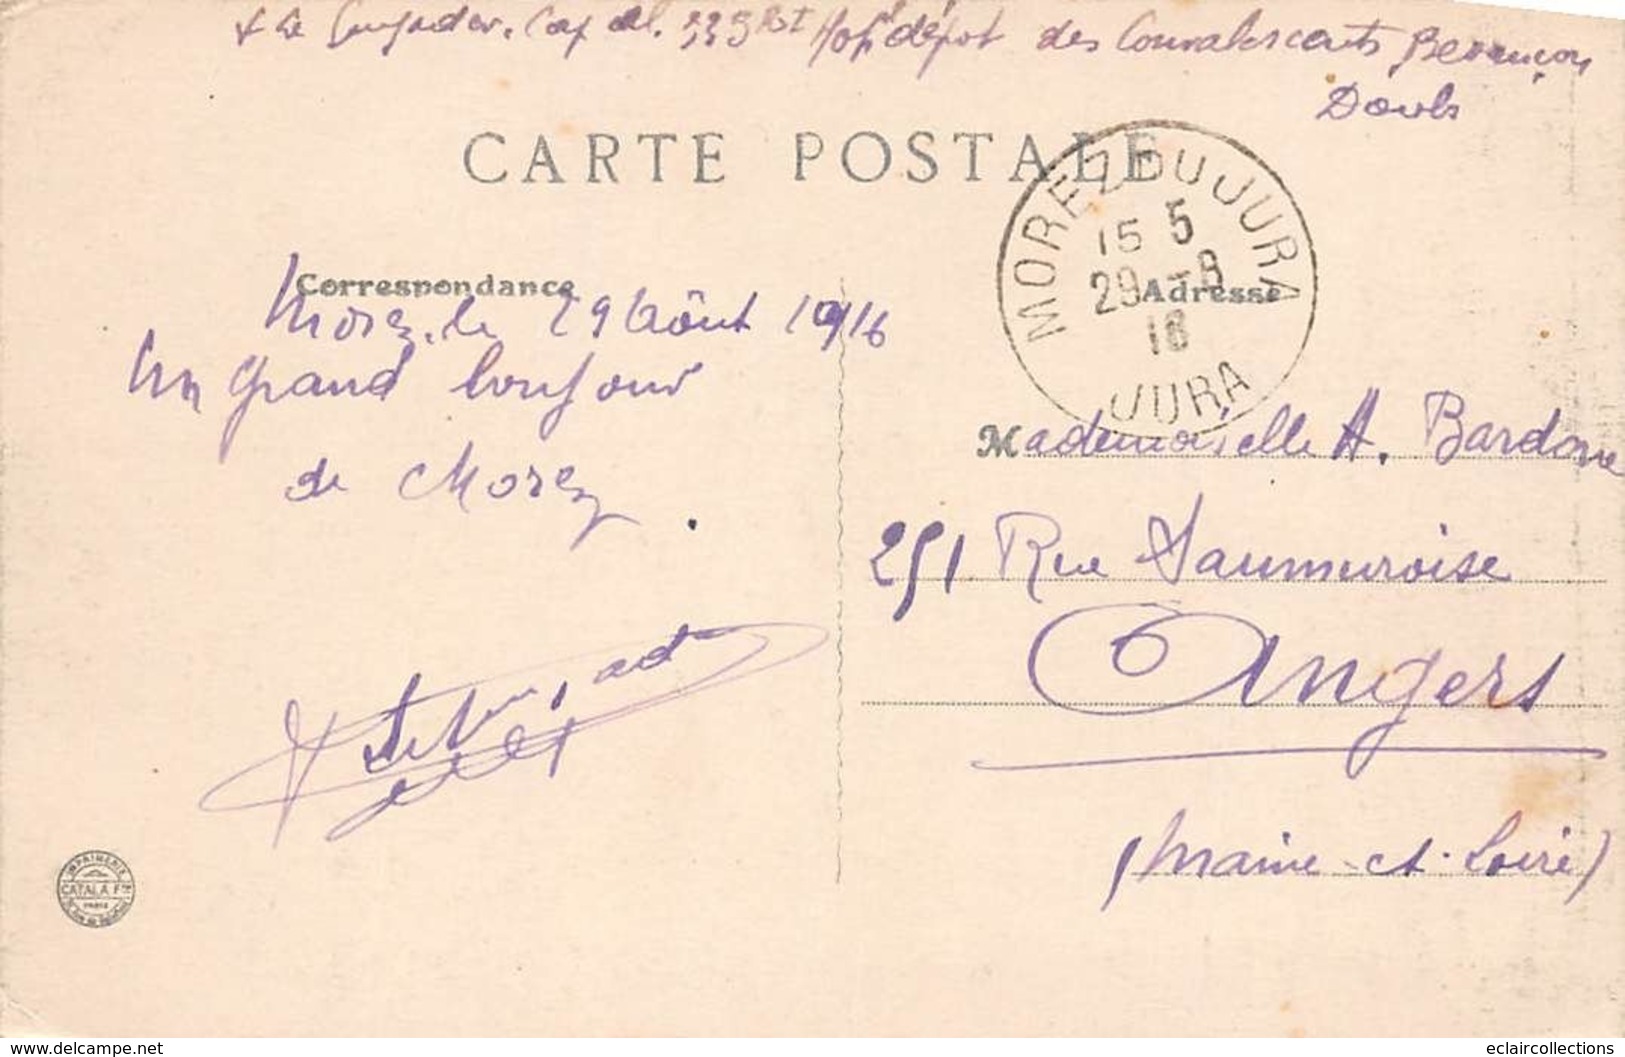 Cap al. 339 Rt Hopl dépôt des Convalescents Besançon
Doubs
CARTE POSTALE
MOREZ DU JURA
15 5
29 -8
16
JURA
Correspondance
Adresse
Morez, le 29 Août 1916
Un grand bonjour
de Morez
Mademoiselle A. Bardone
251 Rue Saumuroise
Angers
(Maine et Loire)
IMPRIMERIE
CATALA Fres
PARIS
www.delcampe.net
eclaircollections